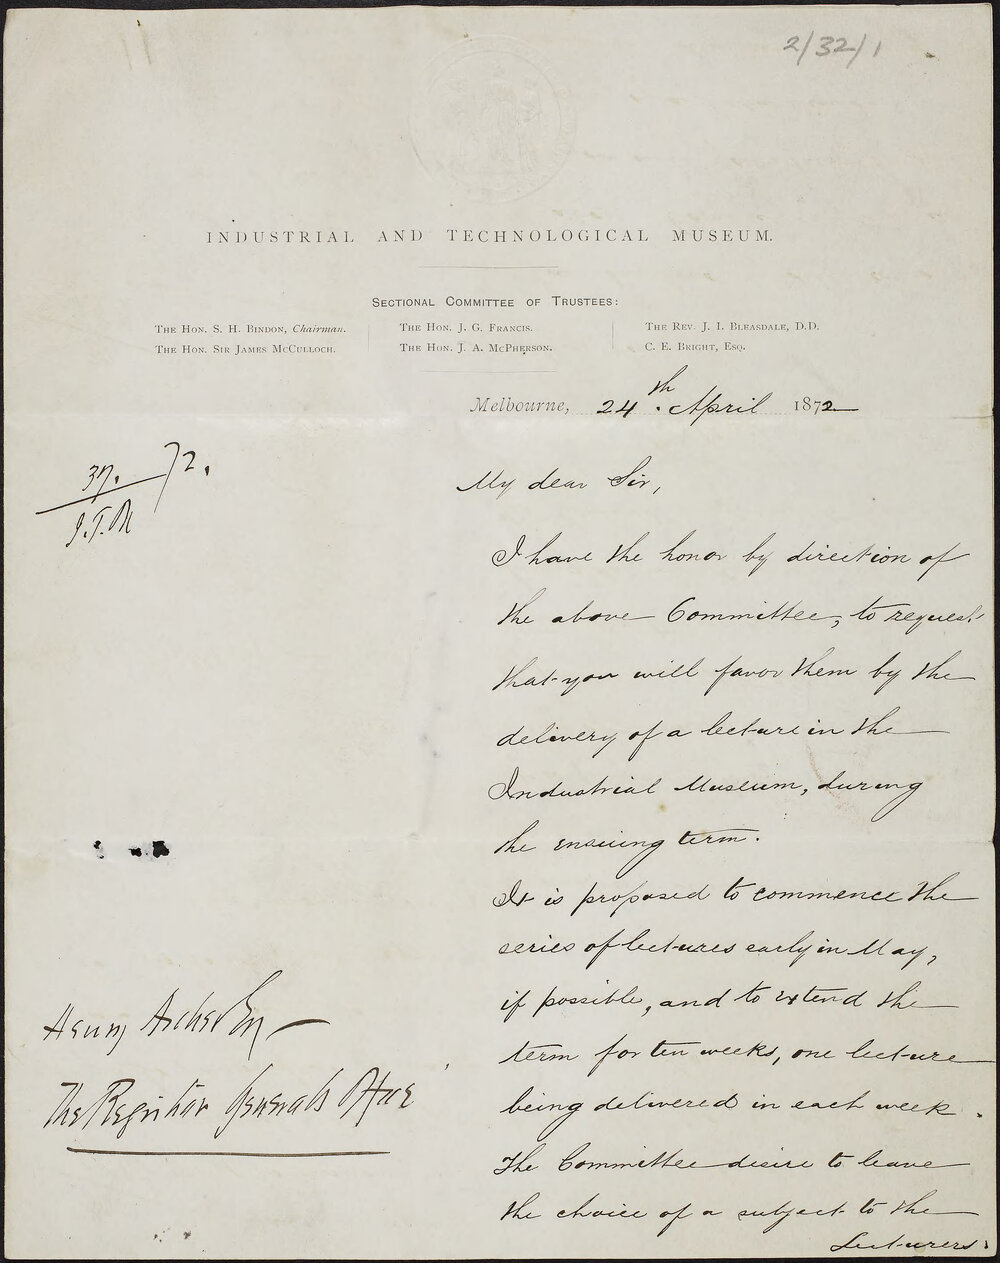 2/32/1
INDUSTRIAL AND TECHNOLOGICAL MUSEUM.
SECTIONAL COMMITTEE OF TRUSTEES:
THE HON. S. H. BINDON, Chairman.
THE HON. SIR JAMES MCCULLOCH.
THE HON. J. G. FRANCIS.
THE HON. J. A. MCPHERSON.
THE REV. J. I. BLEASDALE, D.D.
C. E. BRIGHT, ESQ.
Melbourne, 24th. April 1872
37. /72.
I.T.M
My dear Sir,
I have the honor by direction of
the above Committee, to request
that you will favor them by the
delivery of a lecture in the
Industrial Museum, during
the ensuing term.
It is proposed to commence the
series of lectures early in May,
if possible, and to extend the
term for ten weeks, one lecture
being delivered in each week.
The Committee desire to leave
the choice of a subject to the
Lecturers:
Henry Archer Esq
The Registrar Generals Office